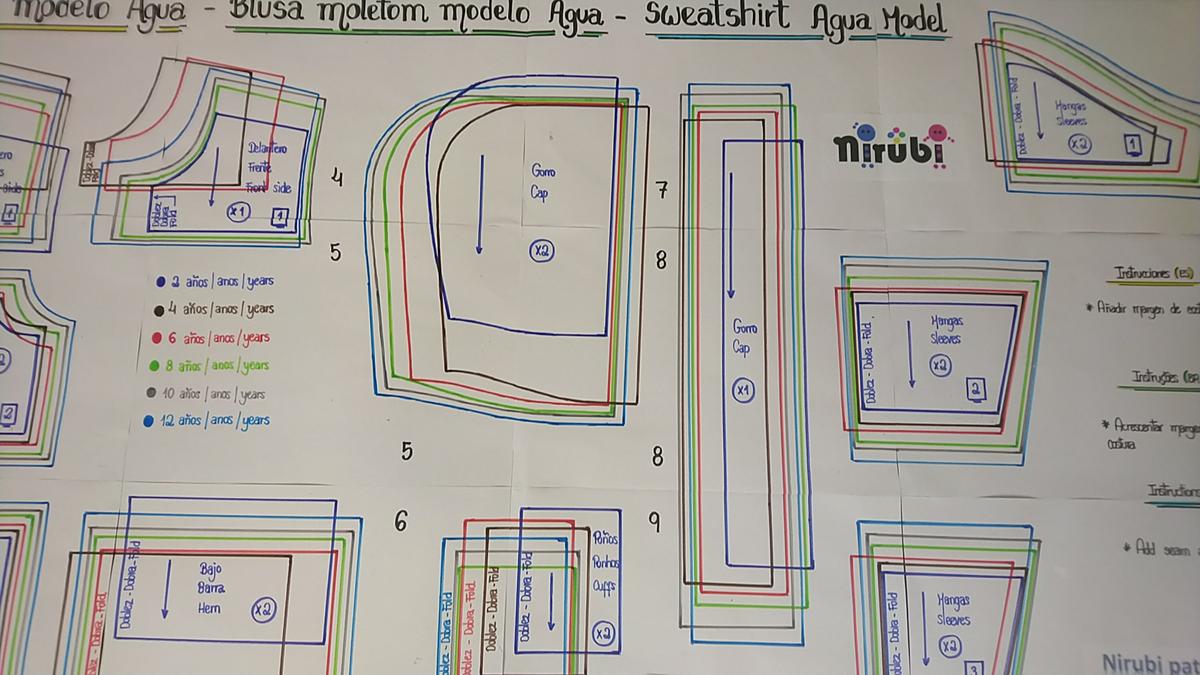 modelo Agua - Blusa moletom modelo Agua - Sweatshirt Agua Model
Doblez - Dobra
Fold
Delantero
Frente
Front side
Doblez
Dobra
Fold
x1
1
side
1
4
5
5
6
Gorro
Cap
x2
7
8
8
9
Gorro
Cap
x1
nirubi
Doblez - Dobra - Fold
Mangas
Sleeves
x2
1
2 años/anos/years
4 años/anos/years
6 años/anos/years
8 años/anos/years
10 años/anos/years
12 años/anos/years
2
Doblez - Dobra - Fold
Mangas
Sleeves
x2
2
Instrucciones (es)
* Añadir margen de
Instruções
* Acrescentar
costura
* Add seam
Doblez - Dobra - Fold
Doblez - Dobra - Fold
Bajo
Barra
Hem
x2
Doblez - Dobra - Fold
Doblez - Dobra - Fold
Doblez - Dobra - Fold
Doblez - Dobra - Fold
Puños
Punhos
Cuffs
x2
Doblez - Dobra - Fold
Mangas
Sleeves
x2
3
Nirubi